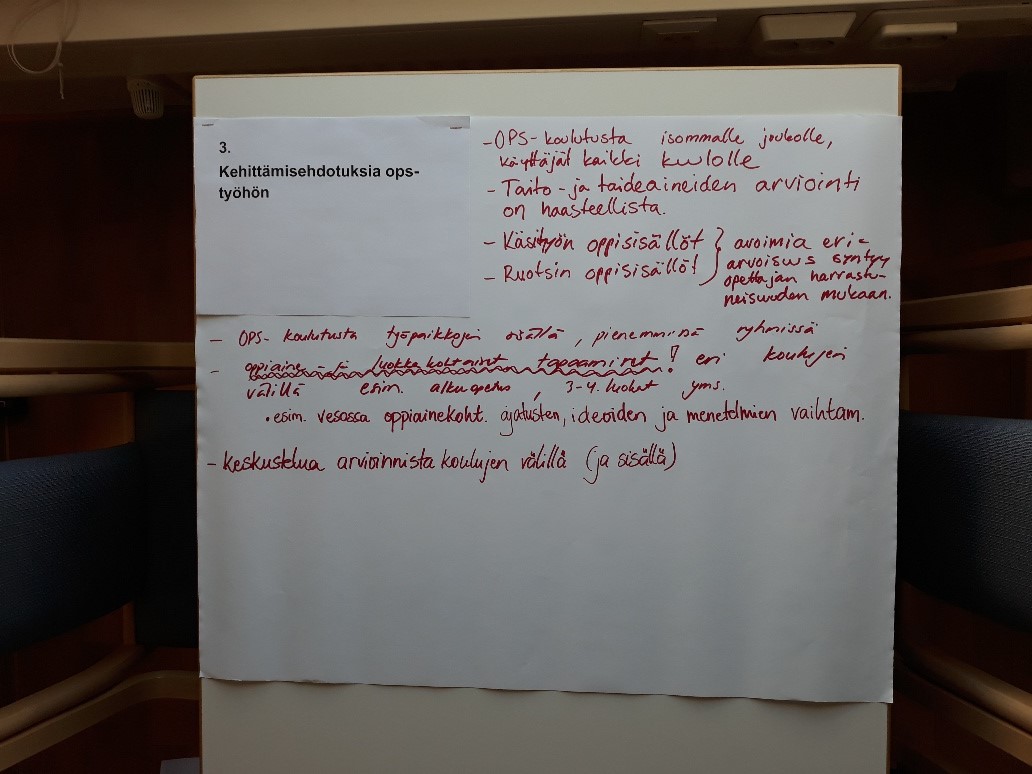 3.
Kehittämisehdotuksia ops-
työhön
- OPS-koulutusta isommalle joukolle,
käyttäjät kaikki kuulolle
- Taito- ja taideaineiden arviointi
on haasteellista.
- Käsityön oppisisällöt } avoimia eri-
- Ruotsin oppisisällöt arvoisuus syntyy
opettajan harrastu-
neisuuden mukaan.
- OPS- koulutusta työpaikkojen sisällä, pienemmissä ryhmissä
- oppiaine - luokkakohtaiset tapaamiset! eri koulujen
välillä esim. alkuopetus, 3-4. luokat yms.
• esim. vesossa oppiainekoht. ajatusten, ideoiden ja menetelmien vaihtam.
- Keskustelua arvioinnista koulujen välillä (ja sisällä)